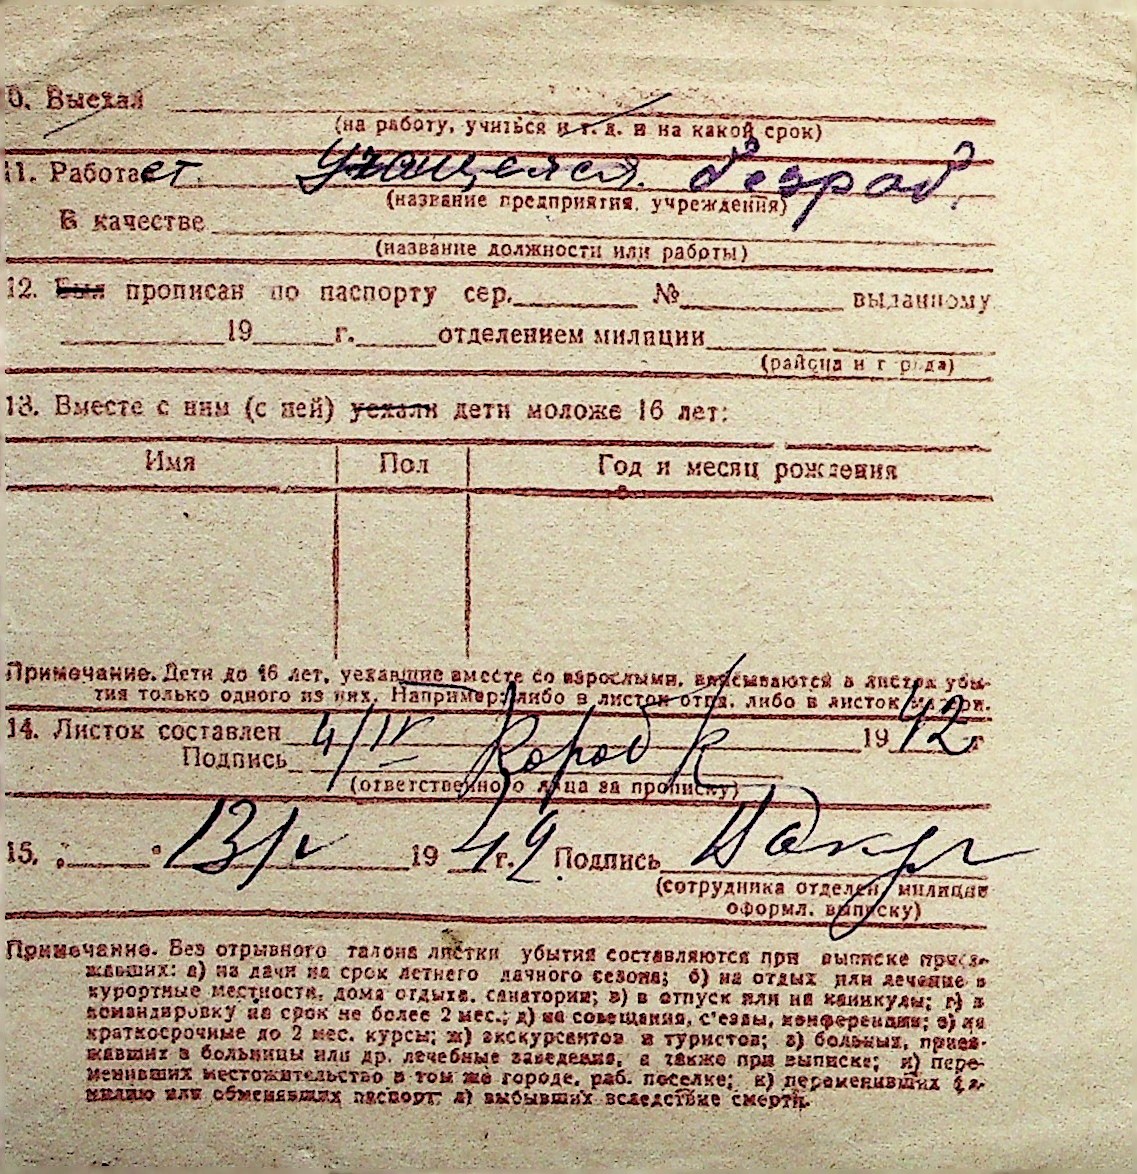 0. Выехал
(на работу, учиться и т. д. и на какой срок)
11. Работает. Учащейся. безраб.
(название предприятия, учреждения)
В качестве
(название должности или работы)
12. Был прописан по паспорту сер. № выданному
19 г. отделением милиции
(района и города)
13. Вместе с ним (с ней) уехали дети моложе 16 лет:
Имя Пол Год и месяц рождения
Примечание. Дети до 16 лет, уехавшие вместе со взрослыми, вписываются в листок убы-
тия только одного из них. Например: либо в листок отца, либо в листок матери.
14. Листок составлен 4/IV 1942 г
Подпись
(ответственного лица за прописку)
15. 19 42 г. Подпись
(сотрудника отделен. милиции
оформл. выписку)
Примечание. Без отрывного талона листки убытия составляются при выписке приез-
жавших: а) на дачи на срок летнего дачного сезона; б) на отдых или лечение в
курортные местности, дома отдыха, санатории; в) в отпуск или на каникулы; г) в
командировку на срок не более 2 мес.; д) на совещания, с'езды, конференции; е) на
краткосрочные до 2 мес. курсы; ж) экскурсантов и туристов; з) больных, приез-
жавших в больницы или др. лечебные заведения, а также при выписке; и) пере-
менивших местожительство в том же городе, раб. поселке; к) переменивших фа-
милию или обменявших паспорт; л) выбывших вследствие смерти.